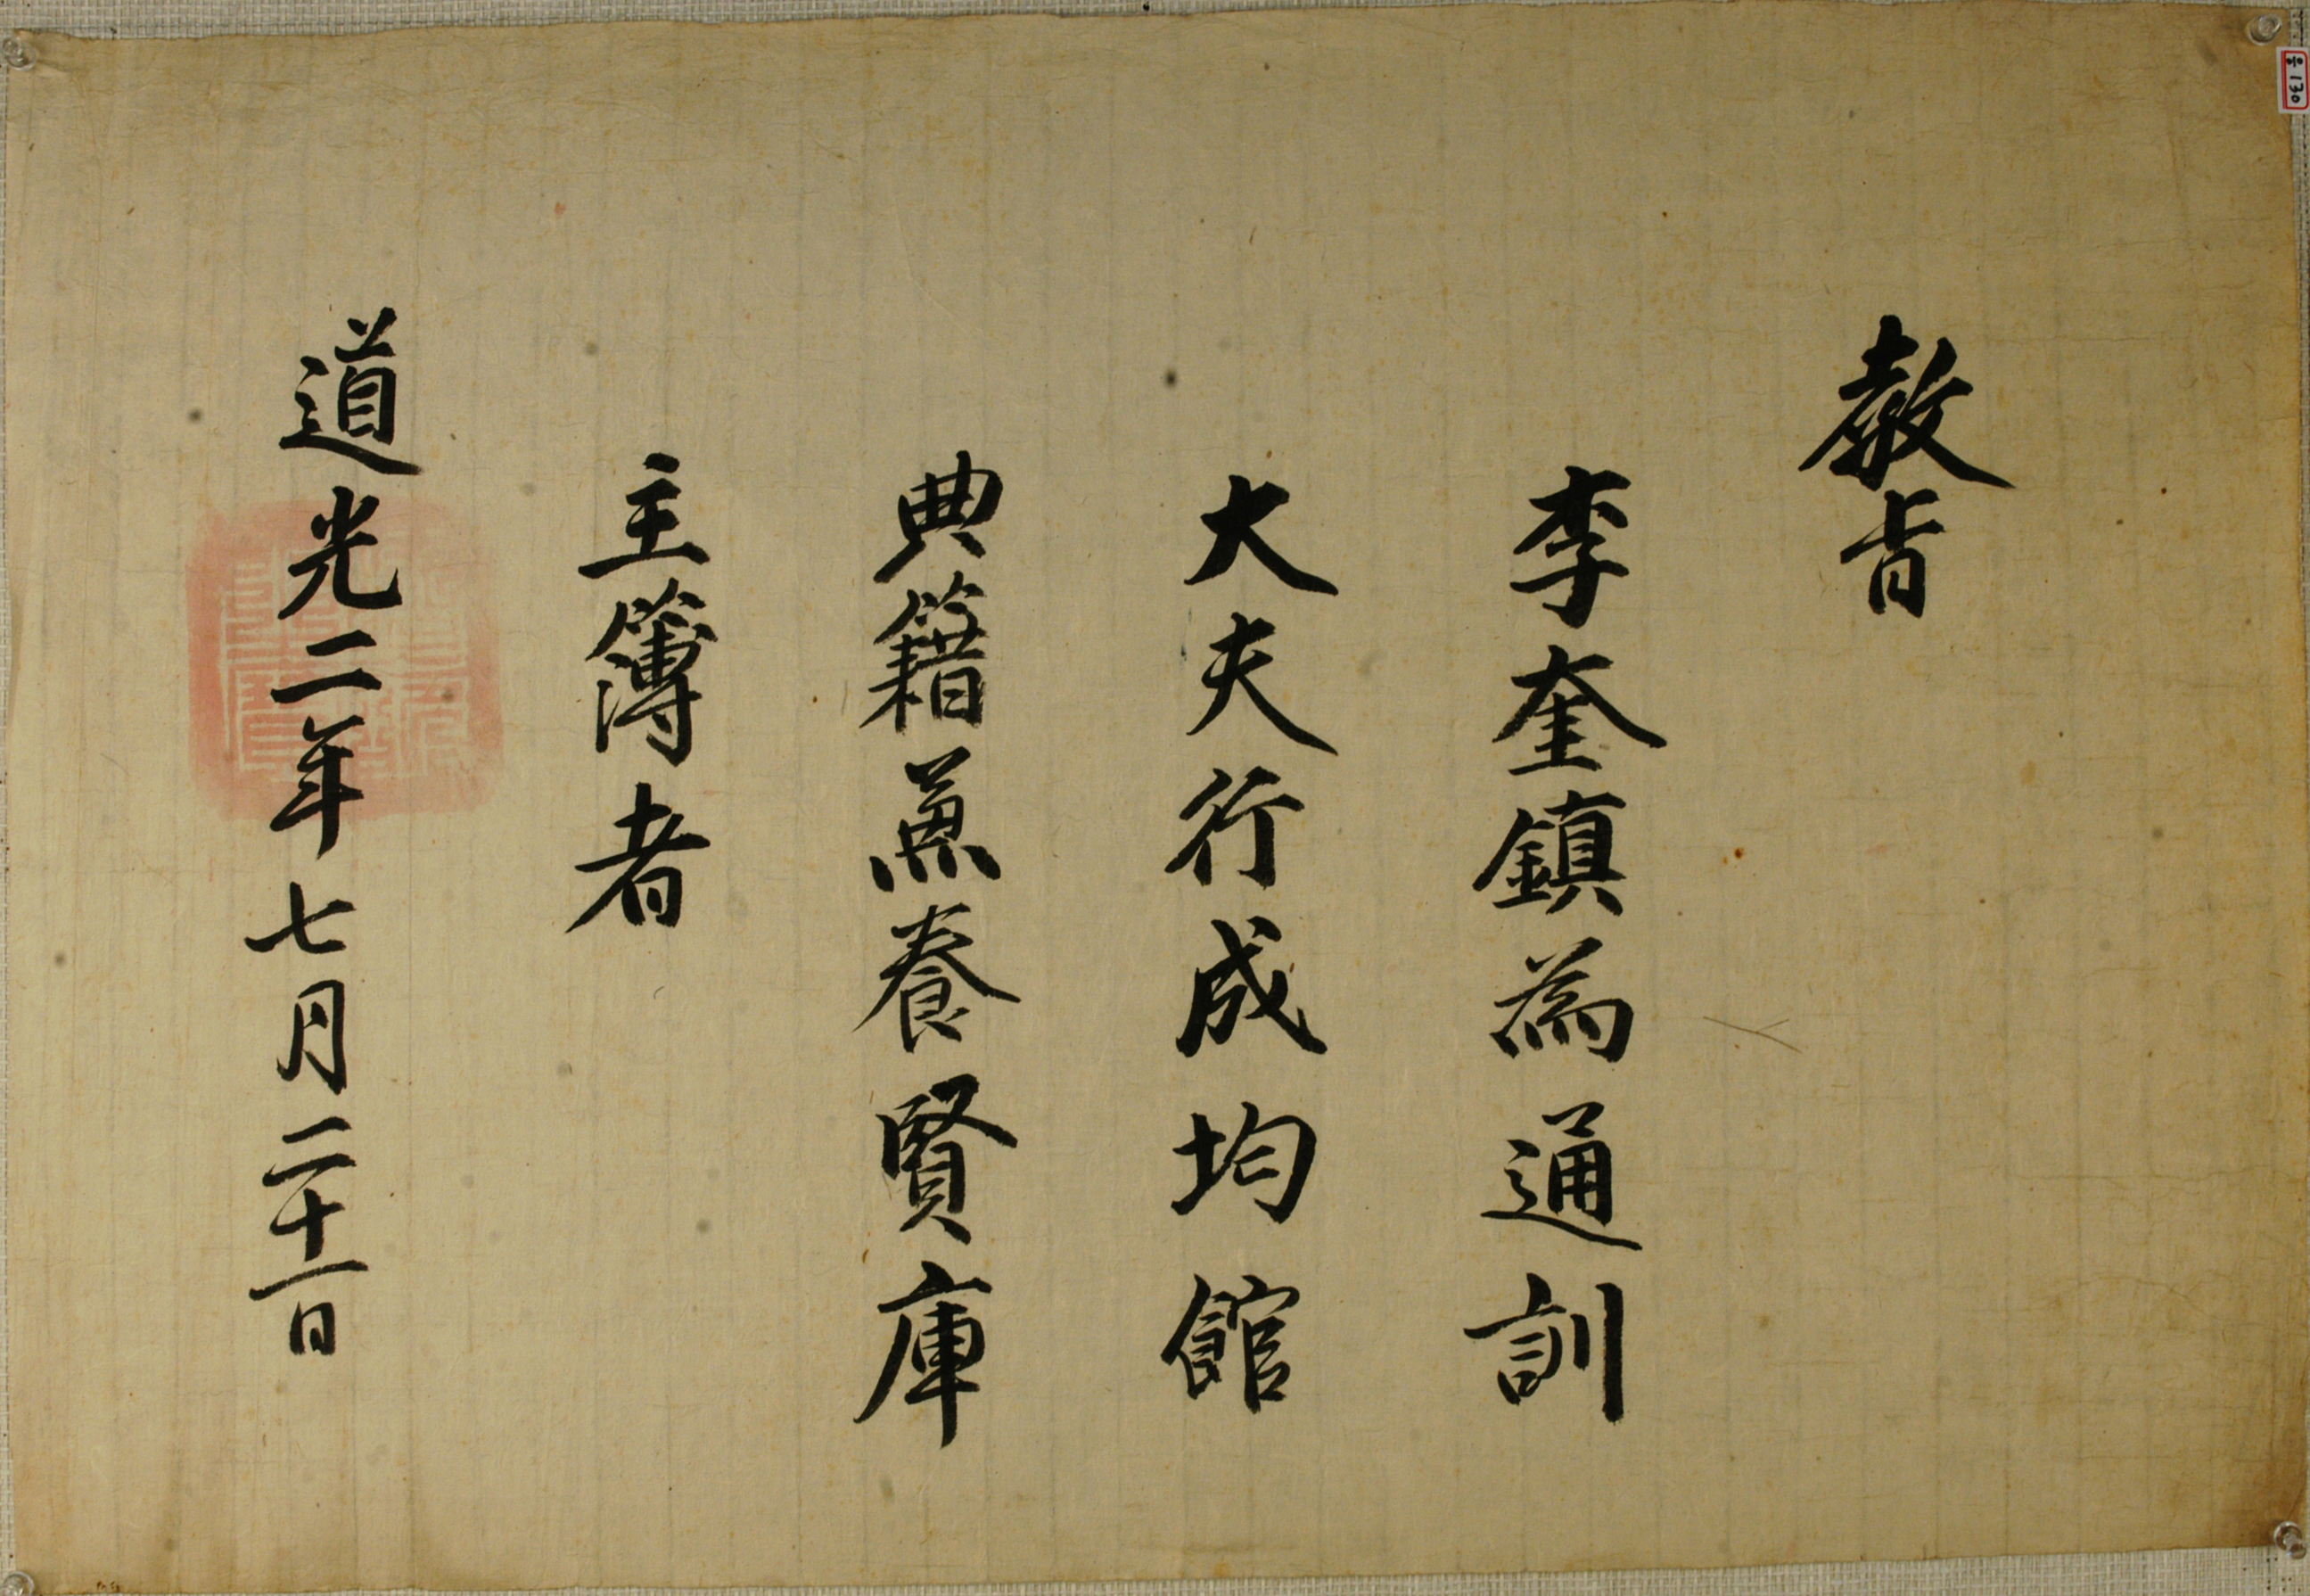 敎旨
李奎鎭為通訓
大夫行成均館
典籍𠔥養賢庫
主簿者
道光二年七月二十一日
130